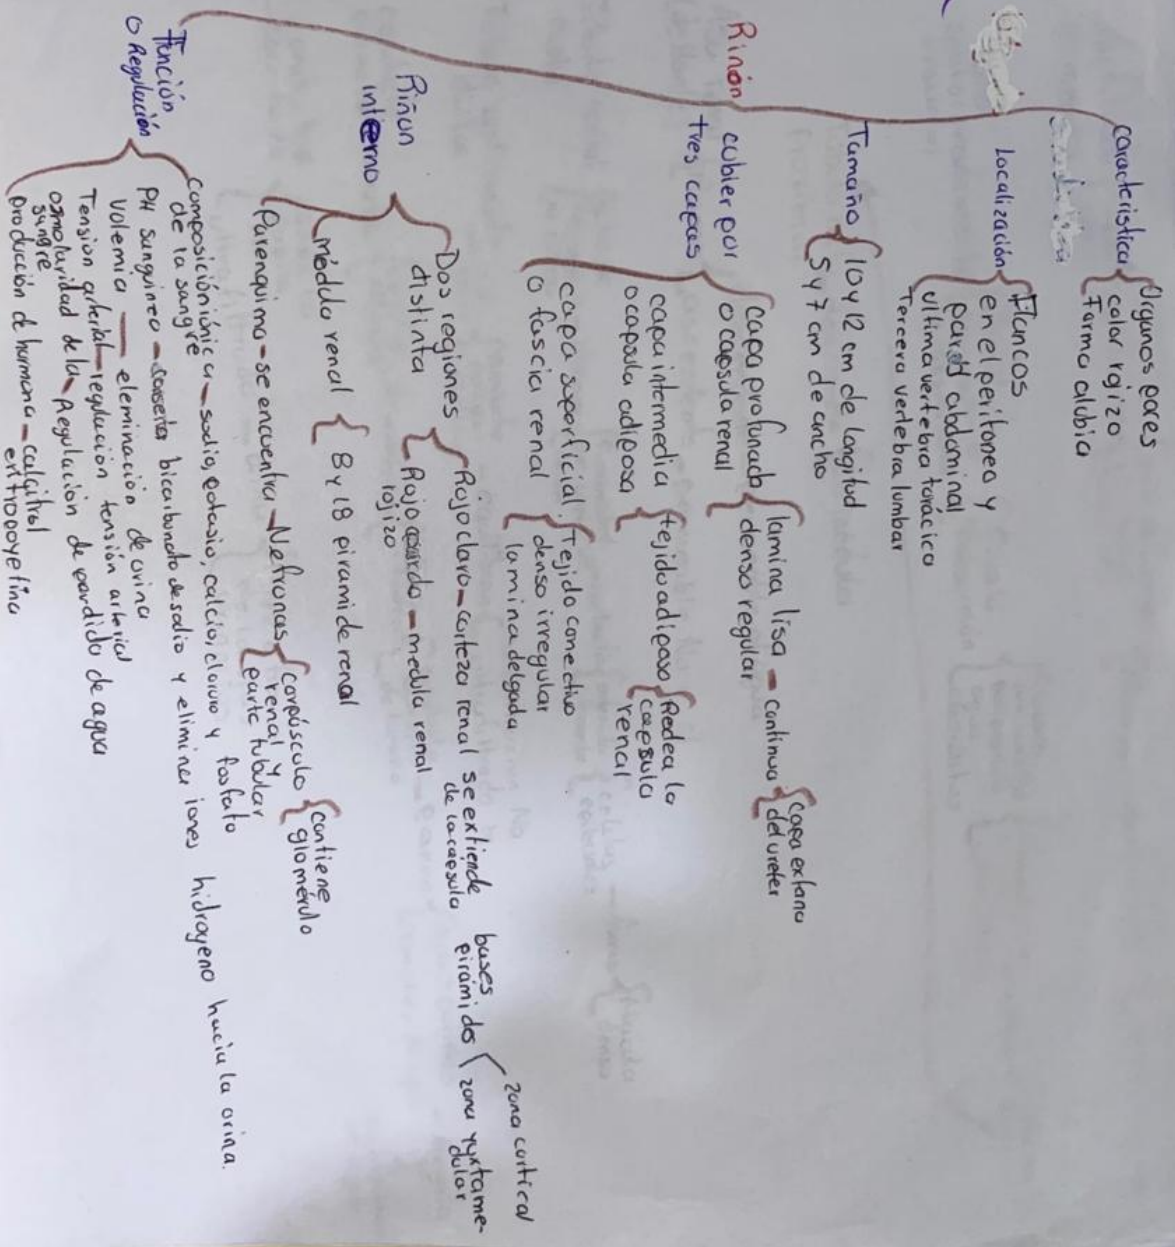 Riñón
Caracteristica
Organos pares
color rojizo
Forma alubia
Localización
Flancos
en el peritoneo y
pared abdominal
ultima vertebra torácica
Tercera vertebra lumbar
Tamaño
10 y 12 cm de longitud
5 y 7 cm de ancho
cubier por
tres capas
capa profunada
o capsula renal
lamina lisa - continua
denso regular
capa extana
del ureter
capa intermedia
o capsula adiposa
tejido adiposo
Redea la
capsula
renal
capa superficial
o fascia renal
Tejido conectivo
denso irregular
lamina delgada
Riñon
interno
Dos regiones
distinta
Rojo claro - corteza renal se extiende
de la capsula
bases
pirámides
zona cortical
zona yuxtame-
dular
Rojo pardo - medula renal
rojizo
médula renal
8 y 18 piramide renal
Parenquima - se encuentra - Nefronas
corpúsculo
renal y
parte tubular
contiene
glomérulo
Función
o Regulación
Composición iónica - sodio, potasio, calcio, cloruro y fosfato
de la sangre
PH sanguineo - conserta bicarbonato de sodio y eliminar iones hidrogeno hacia la orina.
Volemia - eleminación de orina
Tension arterial - regulación tensión arterial
osmolaridad de la - Regulación de perdido de agua
sangre
producción de hormona - calcitrol
eritropoyetina